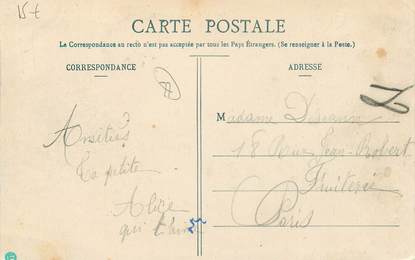 15 €
CARTE POSTALE
La Correspondance au recto n'est pas acceptée par tous les Pays Étrangers. (Se renseigner à la Poste.)
CORRESPONDANCE
ADRESSE
Ta ptite
Alice
qui t'aime
Madame
18 Rue Jean-Robert
Fruiterie
Paris